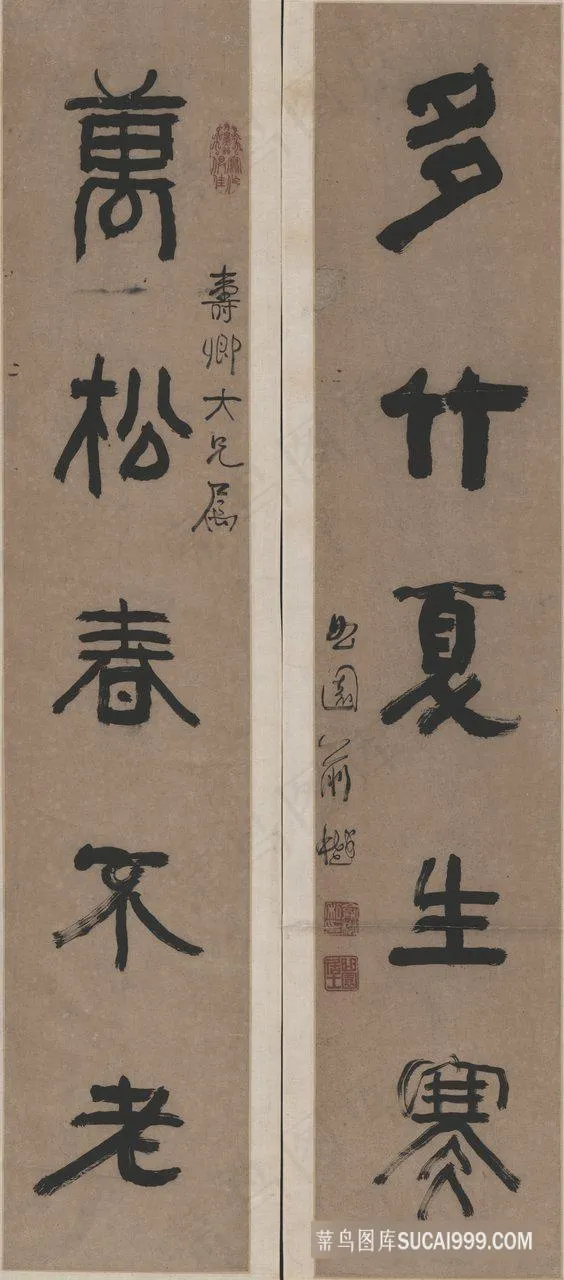 多竹夏生寒
曲園俞樾
壽卿大兄屬
萬松春不老
菜鸟图库SUCAI999.COM